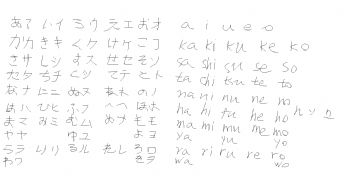 あア いイ うウ えエ おオ a i u e o
かカ きキ くク けケ こコ ka ki ku ke ko
さサ しシ すス せセ そソ sa shi su se so
たタ ちチ くツ てテ とト ta chi tsu te to
なナ にニ ぬヌ ねネ のノ na ni nu ne no
はハ ひヒ ふフ へヘ ほホ ha hi fu he ho んン
まマ みミ むム めメ もモ ma mi mu me mo
やヤ ゆユ よヨ ya yu yo
らラ りリ るル れレ ろロ ra ri ru re ro
わワ をヲ wa wo